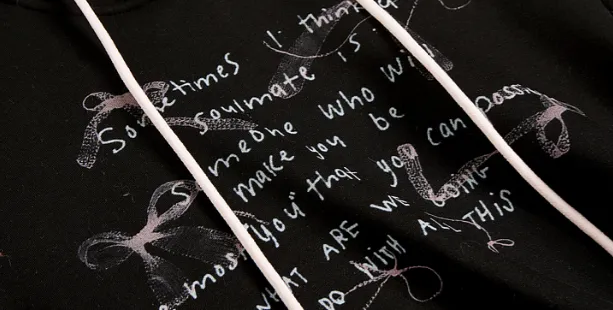 Sometimes I think
soulmate is
someone who will
make you be
most "you" that you can possi
WHAT ARE WE GOING
DO WITH ALL THIS